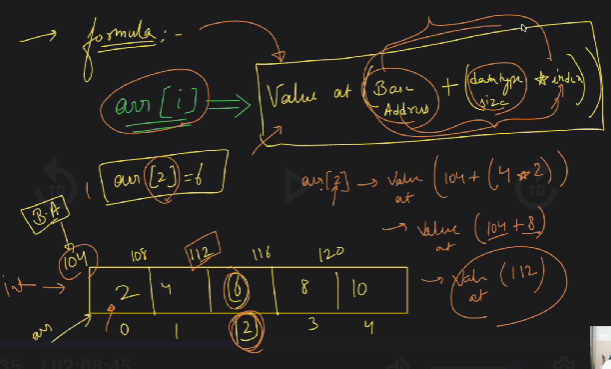 → formula :-
arr [i] ⇒ Value at (Base Address + (datatype size * index))
arr [2] = 6
arr[2] → Value at (104 + (4 * 2))
→ Value at (104 + 8)
→ Value at (112)
B.A
104 108 112 116 120
int →
2 4 6 8 10
arr
0 1 2 3 4
10 10
35 / 02:08:45